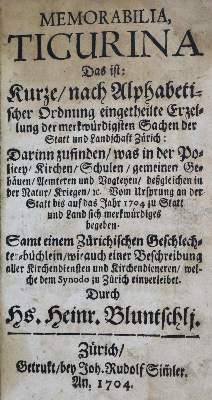 MEMORABILIA,
TIGURINA
Das ist:
Kurze/ nach Alphabeti-
scher Ordnung eingetheilte Erzel-
lung der merkwürdigsten Sachen der
Statt und Landschaft Zürich:
Darinn zufinden/ was in der Po-
licey/ Kirchen/ Schulen/ gemeinen Ge-
bäuen/ Aemteren und Vogteyen/ deßgleichen in
der Natur/ Kriegen/ ꝛc. Vom Ursprung an der
Statt bis auf das Jahr 1704 zu Statt
und Land sich merkwürdiges
begeben.
Samt einem Zürichischen Geschlech-
ter-büchlein/ wie auch einer Beschreibung
aller Kirchendiensten und Kirchendieneren/ wel-
che dem Synodo zu Zürich einverleibet.
Durch
Hs. Heinr. Bluntschlj.
Zürich/
Getrukt/ bey Joh. Rudolf Simler.
An. 1704.